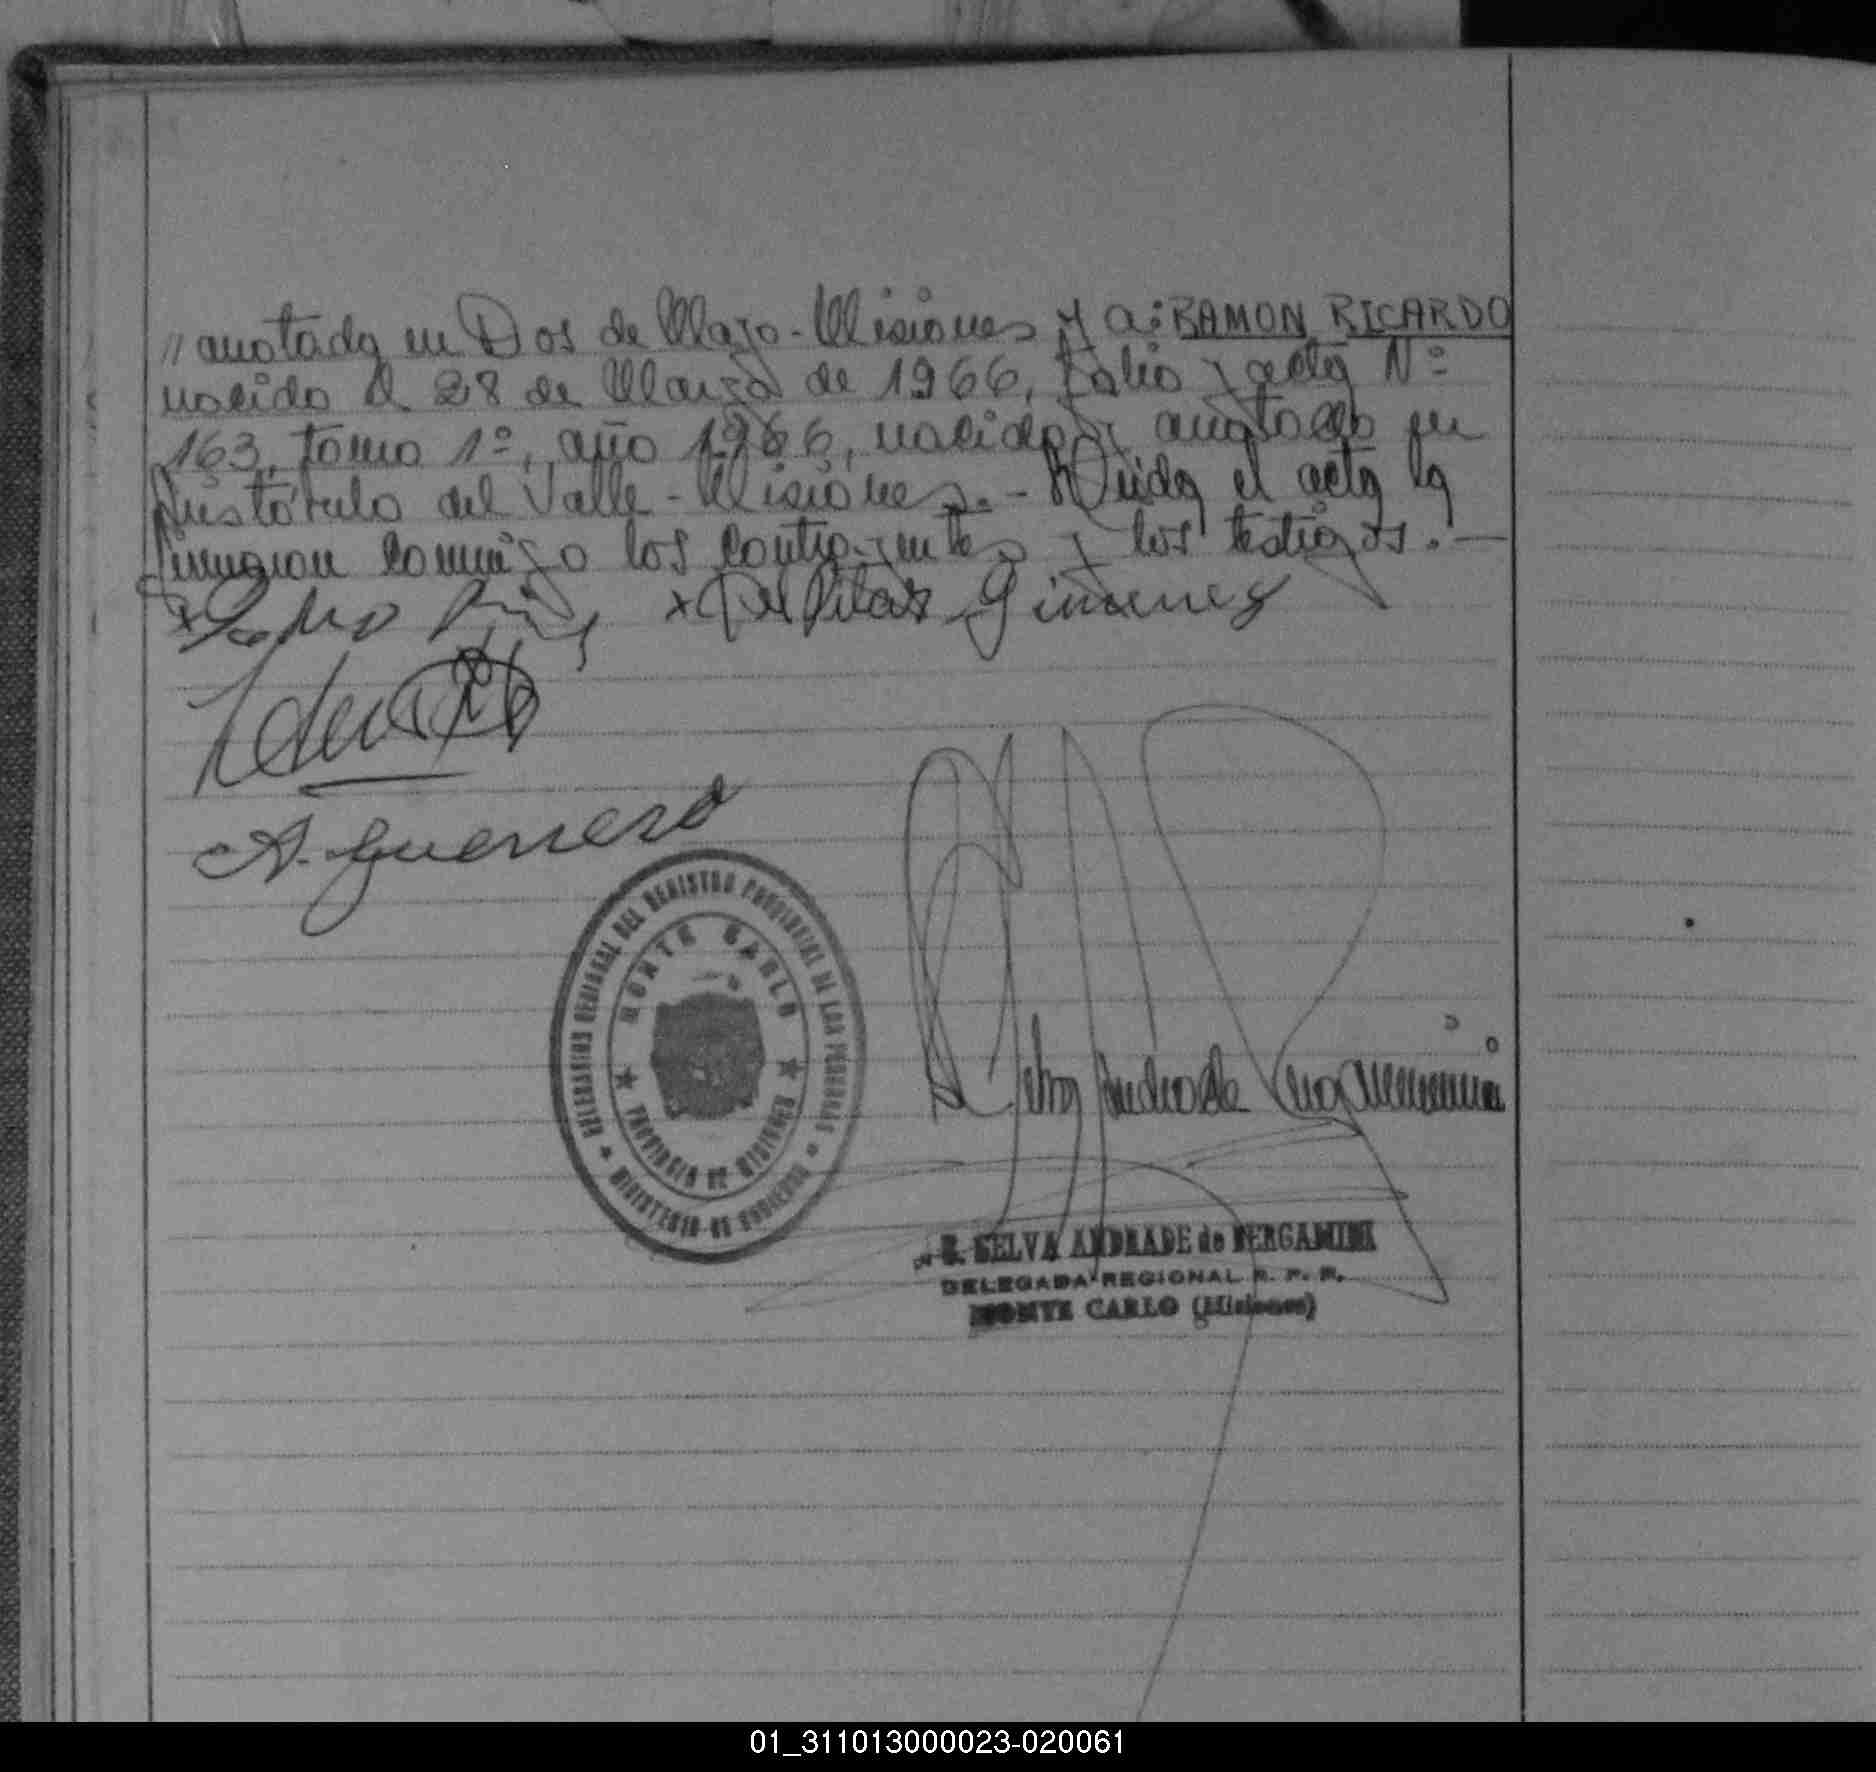 // anotada en Dos de Mayo - Misiones y a: RAMON RICARDO
nacido el 28 de Marzo de 1966, folio y acta Nº
163, tomo 1º, año 1966, nacido y anotado en
Aristóbulo del Valle - Misiones. - Leída el acta la
firmaron conmigo los contrayentes y los testigos. —
x Pedro
x Del Pilar Gimenez
A. Guerrero
DELEGACION REGIONAL DEL REGISTRO PROVINCIAL DE LAS PERSONAS
MONTE CARLO
PROVINCIA DE MISIONES
MINISTERIO DE GOBIERNO
Selva Andrade Bergamini
SELVA ANDRADE de BERGAMINI
DELEGADA REGIONAL R. P. P.
MONTE CARLO (Misiones)
01_311013000023-020061